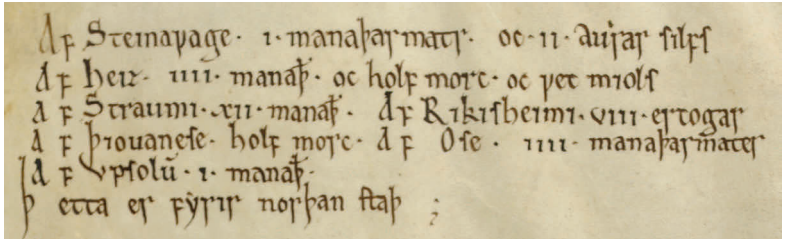 Aꝼ Steinavage · i · manaþarmatr · oc · ii · aurar silfs
aꝼ heir · iiii · manaþ · oc holꝼ morc · oc vet miols
a ꝼ Straumi · xii · manaþ · Aꝼ Rikisheimi · viii · ertogar
a ꝼ þiouanese · holꝼ morc · a ꝼ Ose · iiii · manaþarmater
a ꝼ Vpsolū · i · manaþ ·
þ etta er ꝼyrir norþan staþ ;